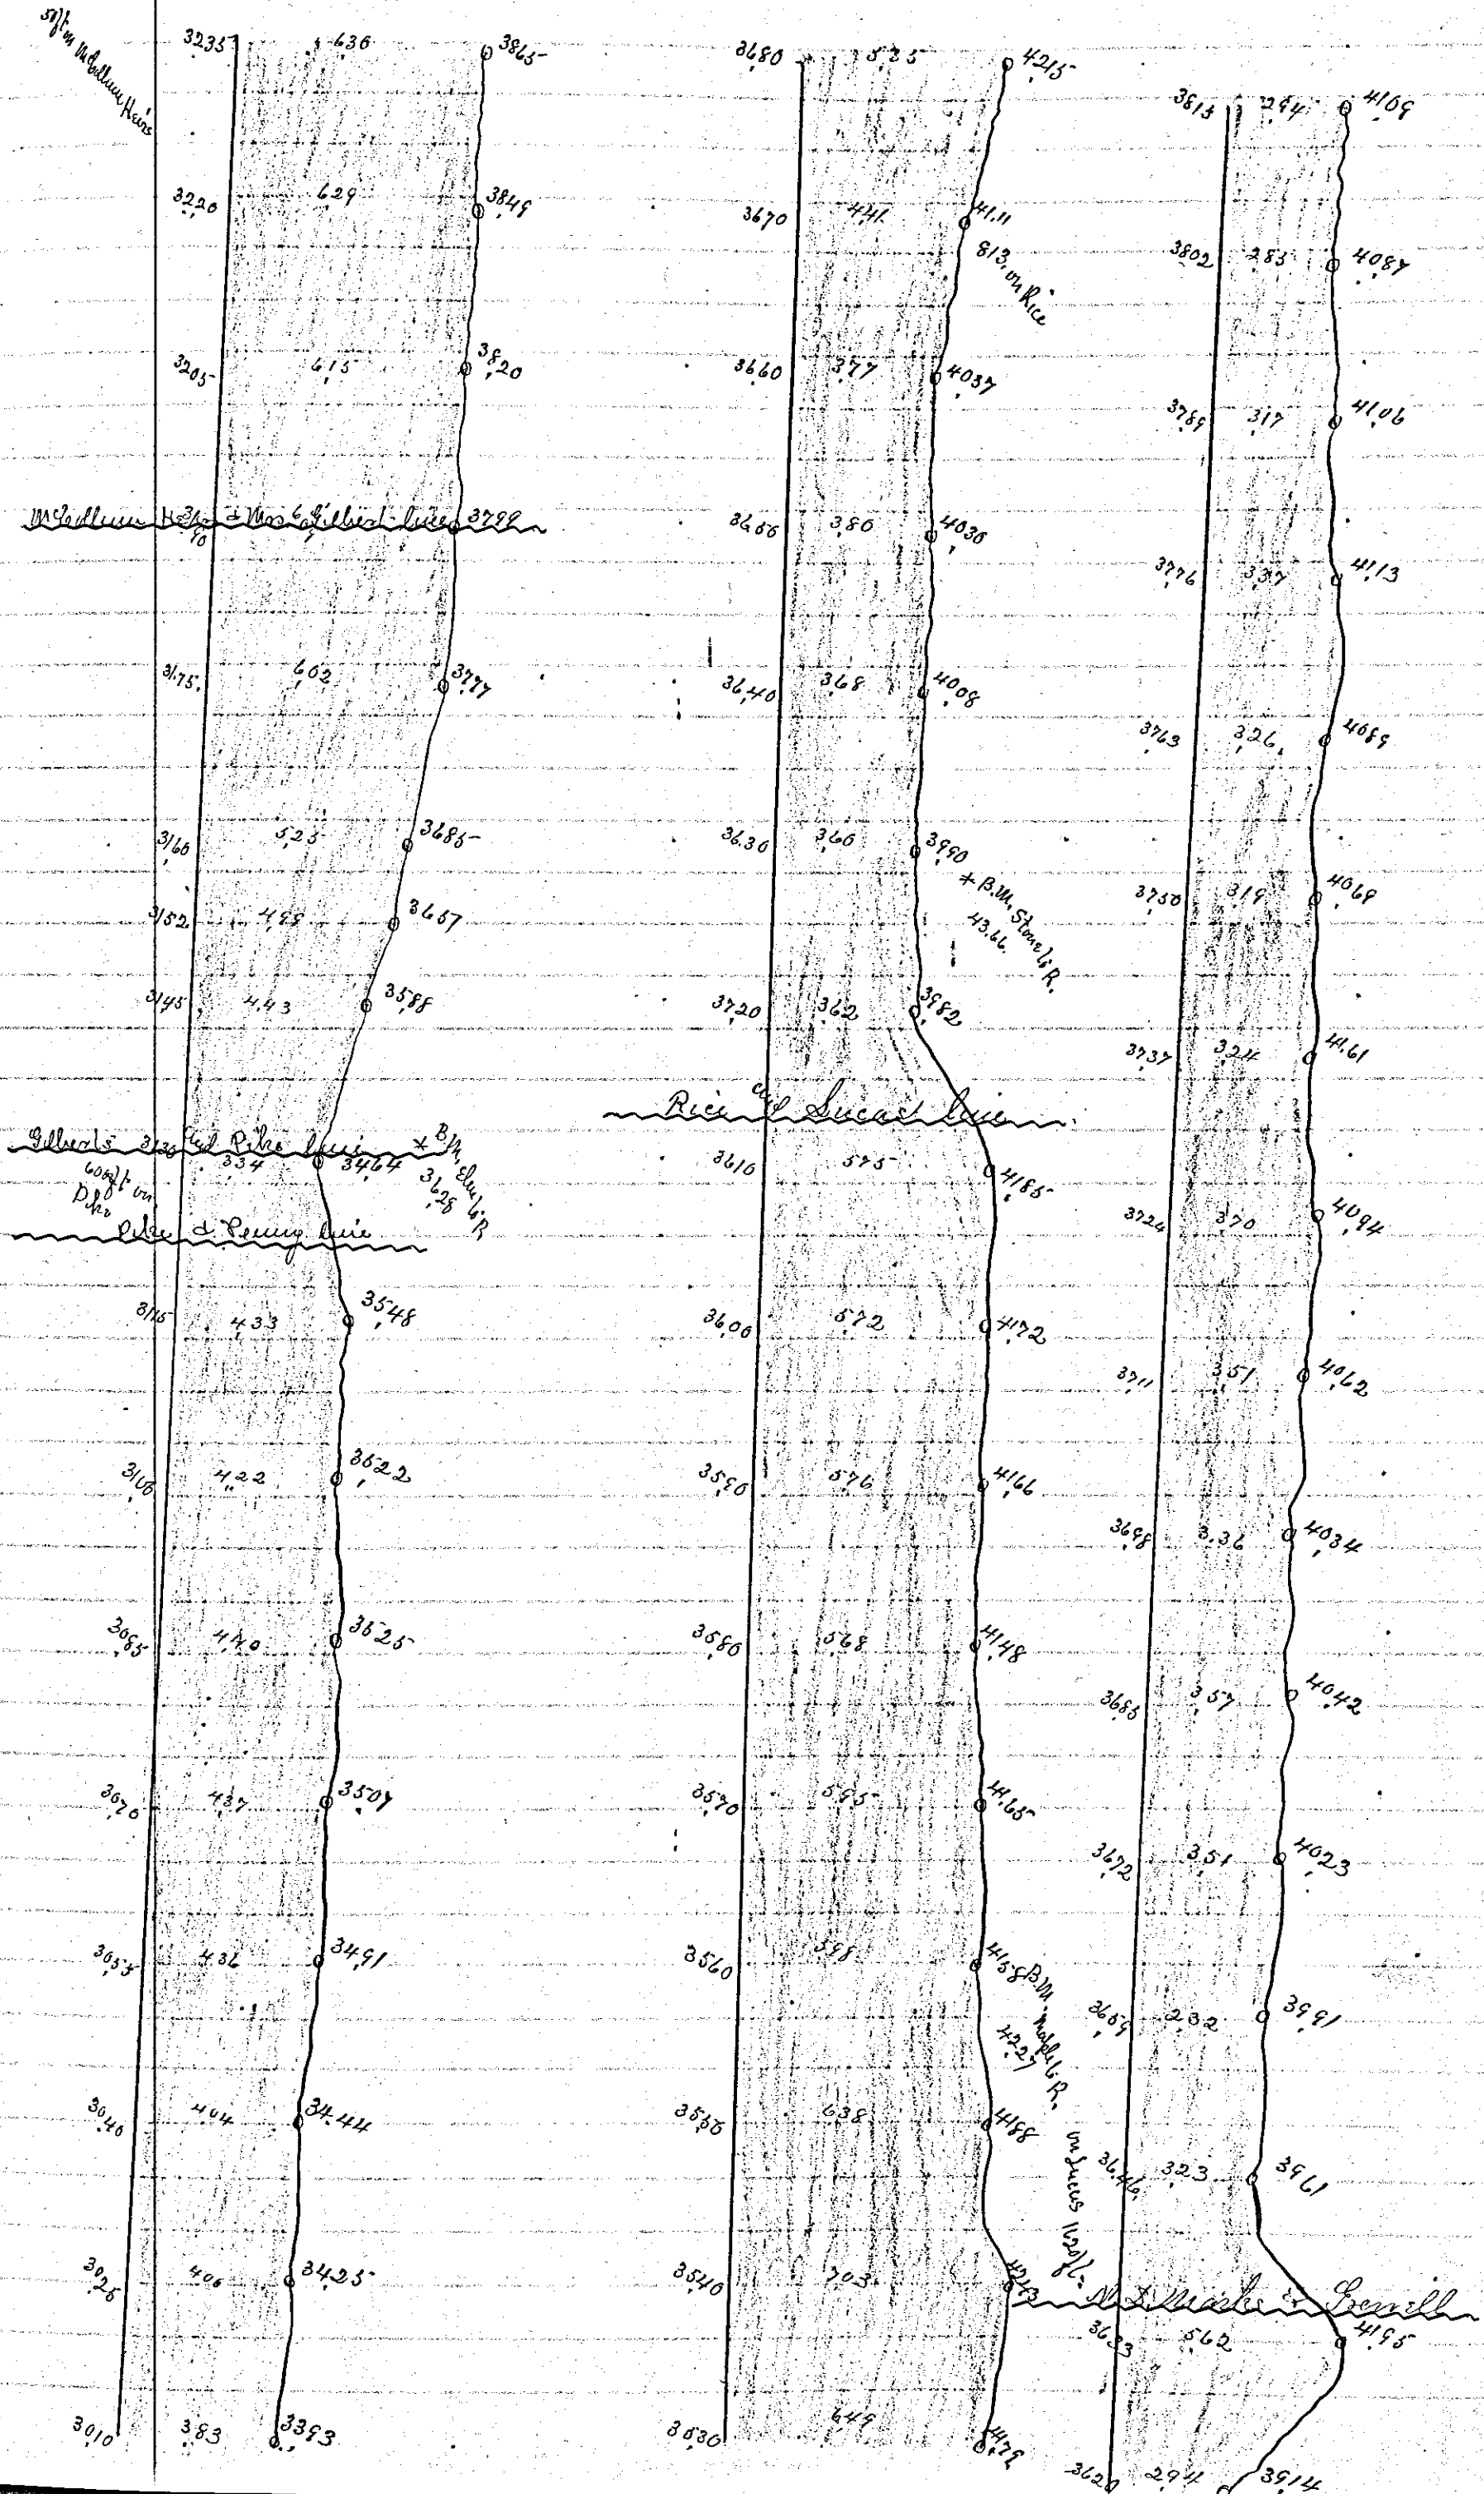 3235 630 3865
3220 629 3849
3205 615 3820
McCollum Heirs & Mrs Gilbert line 3799
3175 602 3777
3160 525 3685
3152 3657
3145 443 3588
Gilberts 3130 and Pike line
334 3464 * B.M. Elm 6.R. 3628
600 ft on Pike
Pike & Penny line
3115 433 3548
3100 422 3522
3085 440 3525
3070 437 3507
3055 436 3491
3040 404 3444
3025 400 3425
3010 383 3393
3680 535 4215
3670 441 4111
813 on Rice
3660 377 4037
3650 380 4030
3640 368 4008
3630 360 3990
* B.M. Stone 6.R. 43.66
3720 362 3982
Rice and Lucas line
3610 575 4185
3600 572 4172
3590 576 4166
3580 568 4148
3570 595 4165
3560 598 4158
B.M. Maple 6.R. 4227
3550 638 4188
on Lucas 1620 ft.
3540 703 4243
3530 649 4179
3815 294 4109
3802 285 4087
3789 317 4106
3776 337 4113
3763 326 4089
3750 319 4069
3737 324 4161
3724 370 4094
3711 351 4062
3698 336 4034
3685 357 4042
3672 351 4023
3659 232 3991
3646 323 3961
3633 562 4195
3620 294 3914